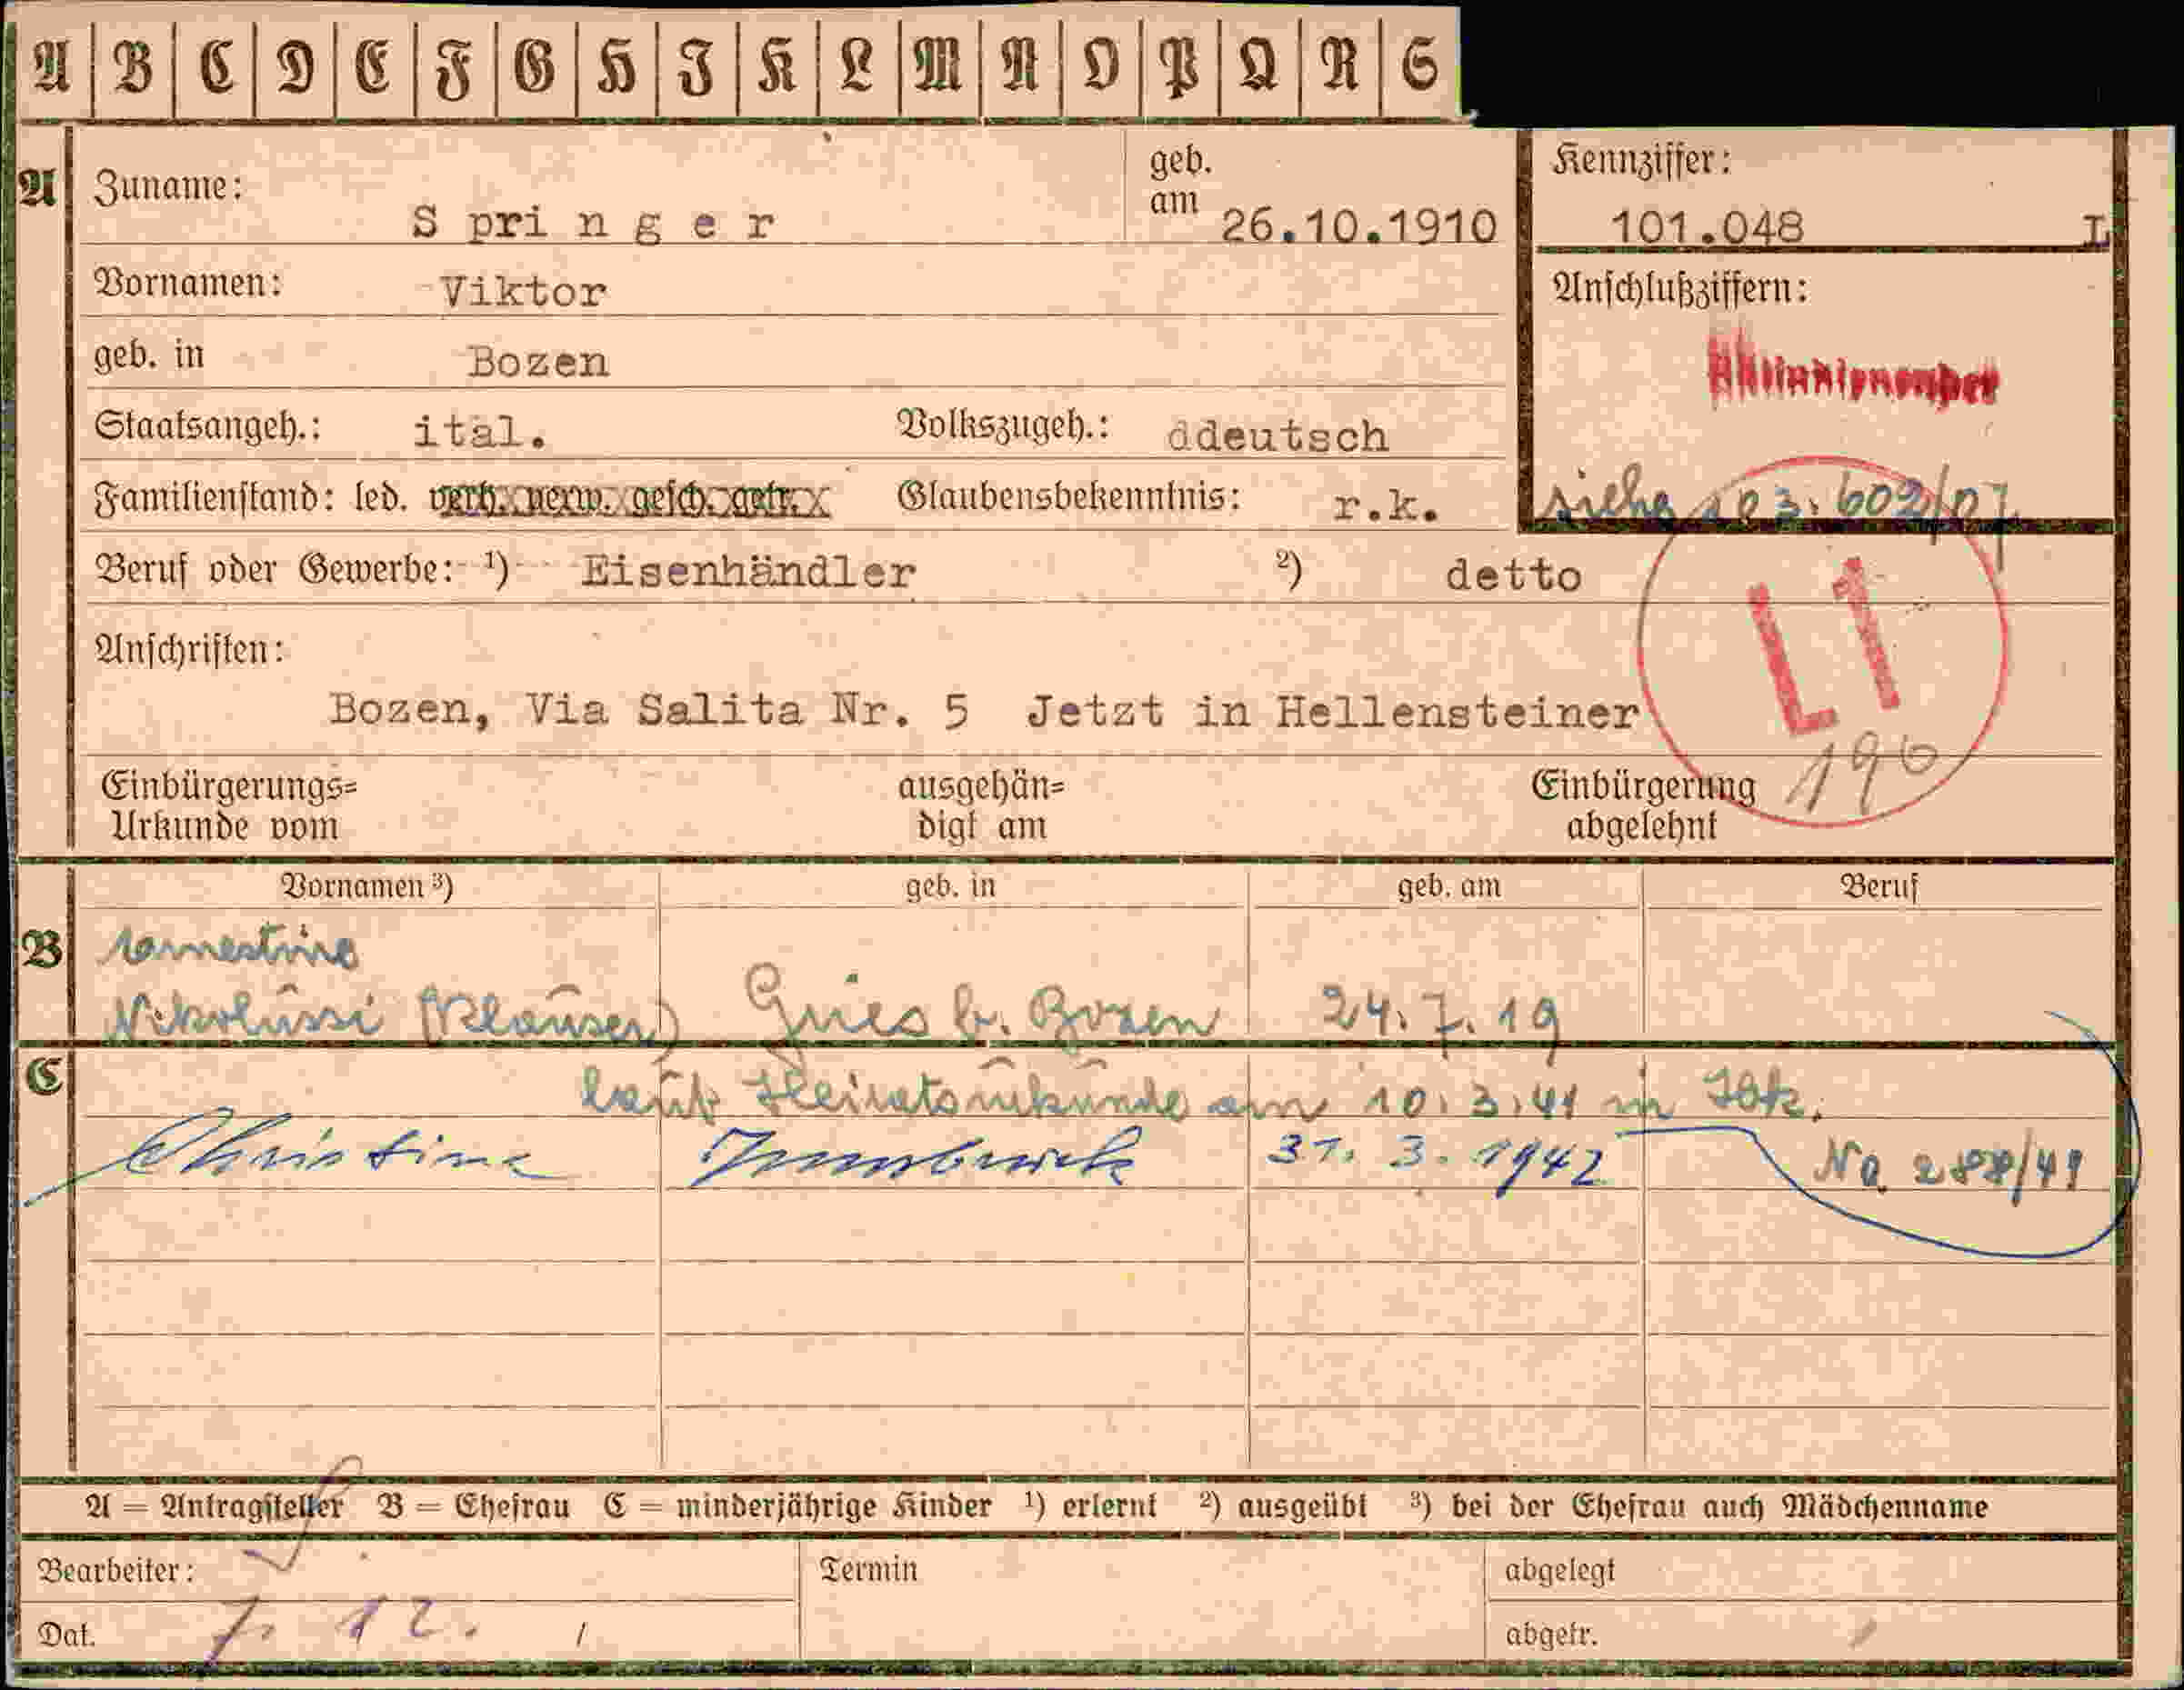 A B C D E F G H I K L M N O P Q R S
A Zuname: Springer geb. am 26.10.1910
Kennziffer: 101.048 L
Vornamen: Viktor
Anschlußziffern:
geb. in Bozen
Staatsangeh.: ital. Volkszugeh.: ddeutsch
siehe 103.602/07
Familienstand: led. verh. verw. gesch. getr. Glaubensbekenntnis: r.k.
Beruf oder Gewerbe: ¹) Eisenhändler ²) detto
L1
Anschriften:
Bozen, Via Salita Nr. 5 Jetzt in Hellensteiner
190
Einbürgerungs= ausgehän= Einbürgerung
Urkunde vom digt am abgelehnt
Vornamen ³) geb. in geb. am Beruf
B
Nikolussi (Klauser) Gries b. Bozen 24.7.19
C laut Heiratsurkunde am 10.3.41 in Ibk.
Christine Innsbruck 31. 3. 1942 No 288/41
A = Antragsteller B = Ehefrau C = minderjährige Kinder ¹) erlernt ²) ausgeübt ³) bei der Ehefrau auch Mädchenname
Bearbeiter: Termin abgelegt
Dat. 7. 12. abgetr.